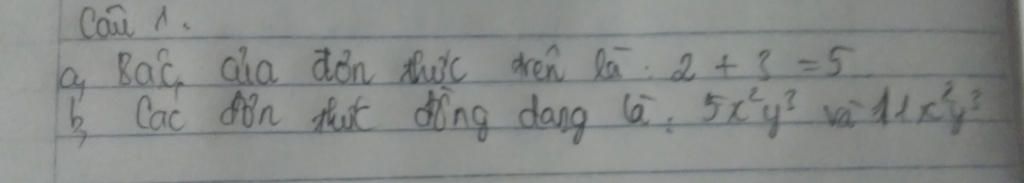 Câu 1.
a, Bậc của đơn thức trên là: 2 + 3 = 5
b, Các đơn thức đồng dạng là: 5x²y³ và 11x²y³